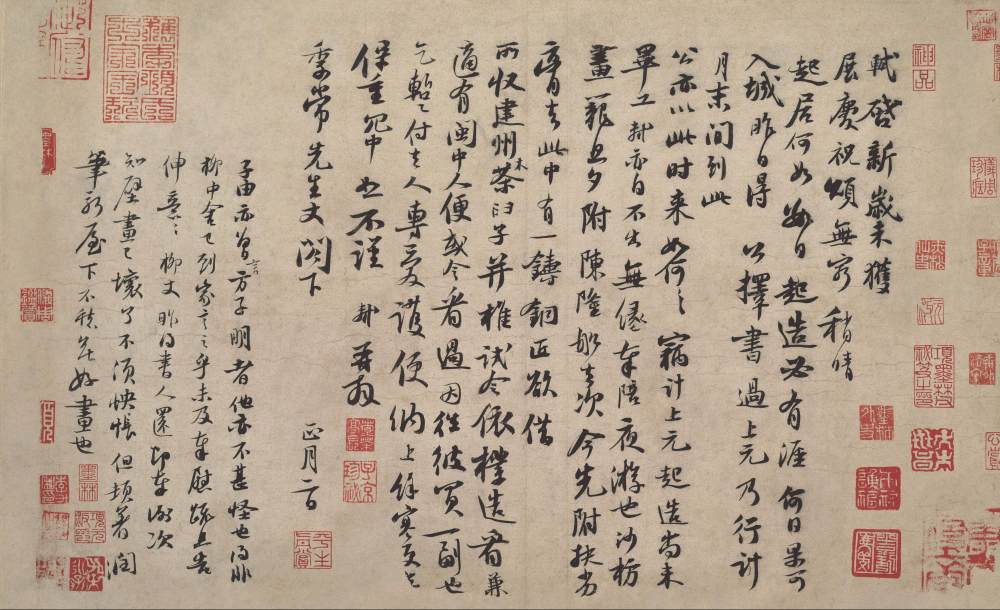 軾啓新歲未獲
展慶祝頌無窮稍晴
起居何如數日起造必有涯何日果可
入城昨日得公擇書過上元乃行計
月末間到此
公亦以此时来如何〻竊計上元起造尚未
畢工軾亦自不出無緣奉陪夜游也沙枋
畫籠旦夕附陳隆船去次今先附扶劣
膏去此中有一鑄銅匠欲借
所收建州木茶臼子并椎試令依樣造看兼
適有閩中人便或令看過因往彼買一副也
乞暫付去人專愛護便納上餘寒更乞
保重冗中恕不謹軾再拜
季常先生丈閤下正月二日
子由亦曾言方子明者他亦不甚怪也得非
柳中舍已到家言之乎未及奉慰疏且告
伸意〻柳丈昨得書人還即奉謝次
知壁畫已壞了不須怏悵但頓著潤
筆新屋下不愁無好畫也
神品